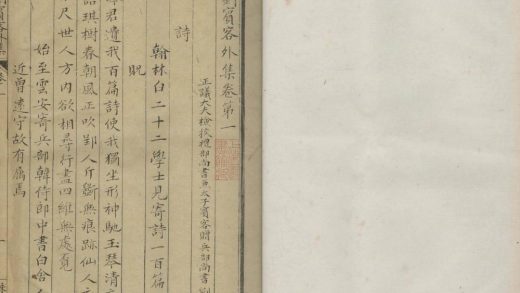 劉賓客外集卷第一
正議大夫檢校禮部尚書兼太子賓客贈兵部尚書劉
詩
翰林白二十二學士見寄詩一百篇
貺
君遺我百篇詩使我獨坐形神馳玉琴清
語琪樹春朝風正吹郢人斤斲無痕跡仙人
尺世人方内欲相尋行盡四維無處覓
始至雲安寄兵部韓侍郎中書白舍
近曾遠守故有屬焉